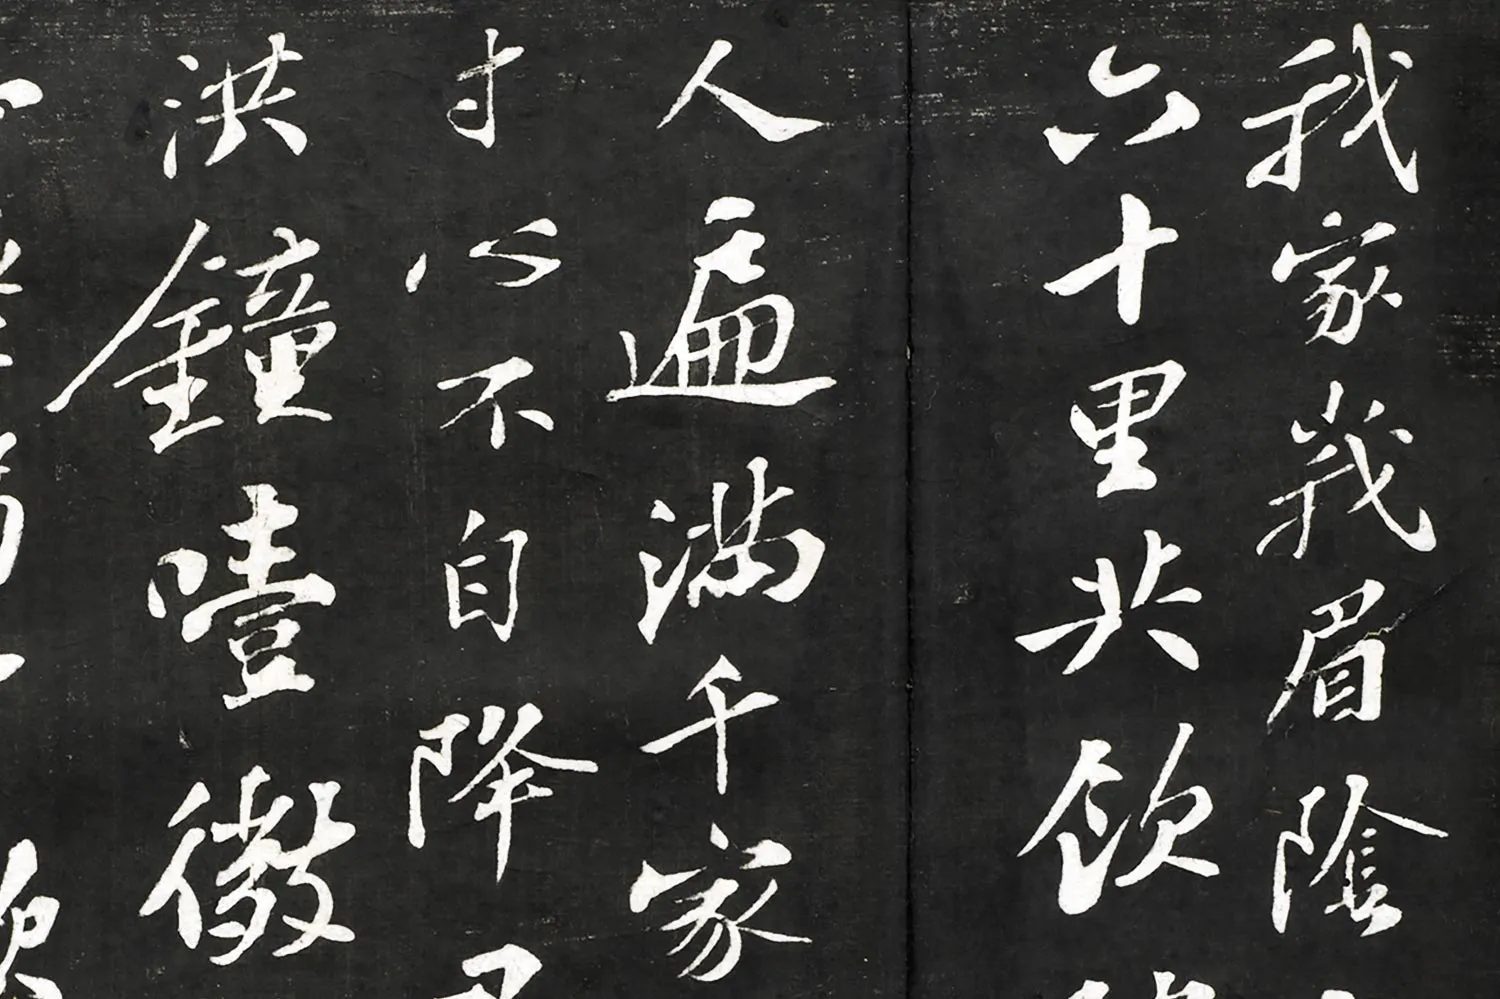 我家峩眉陰
六十里共飲
人遍滿千家
寸心不自降
洪鐘噎微